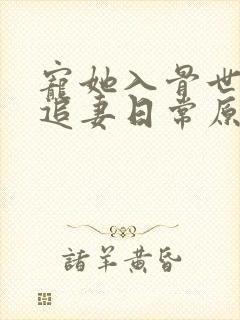 寵她入骨世
追妻日常原
諸羊黃昏